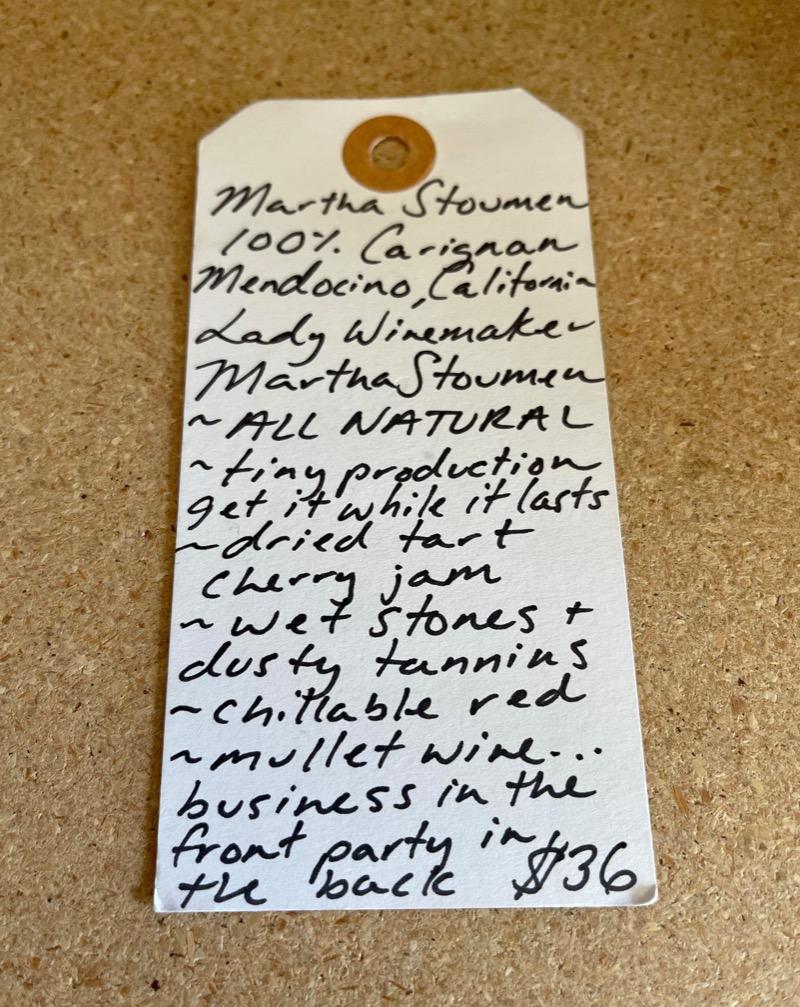 Martha Stoumen
100% Carignan
Mendocino, California
Lady Winemaker
Martha Stoumen
~ ALL NATURAL
~ tiny production
get it while it lasts
~ dried tart
cherry jam
~ wet stones +
dusty tannins
~ chillable red
~ mullet wine...
business in the
front party in
the back $36